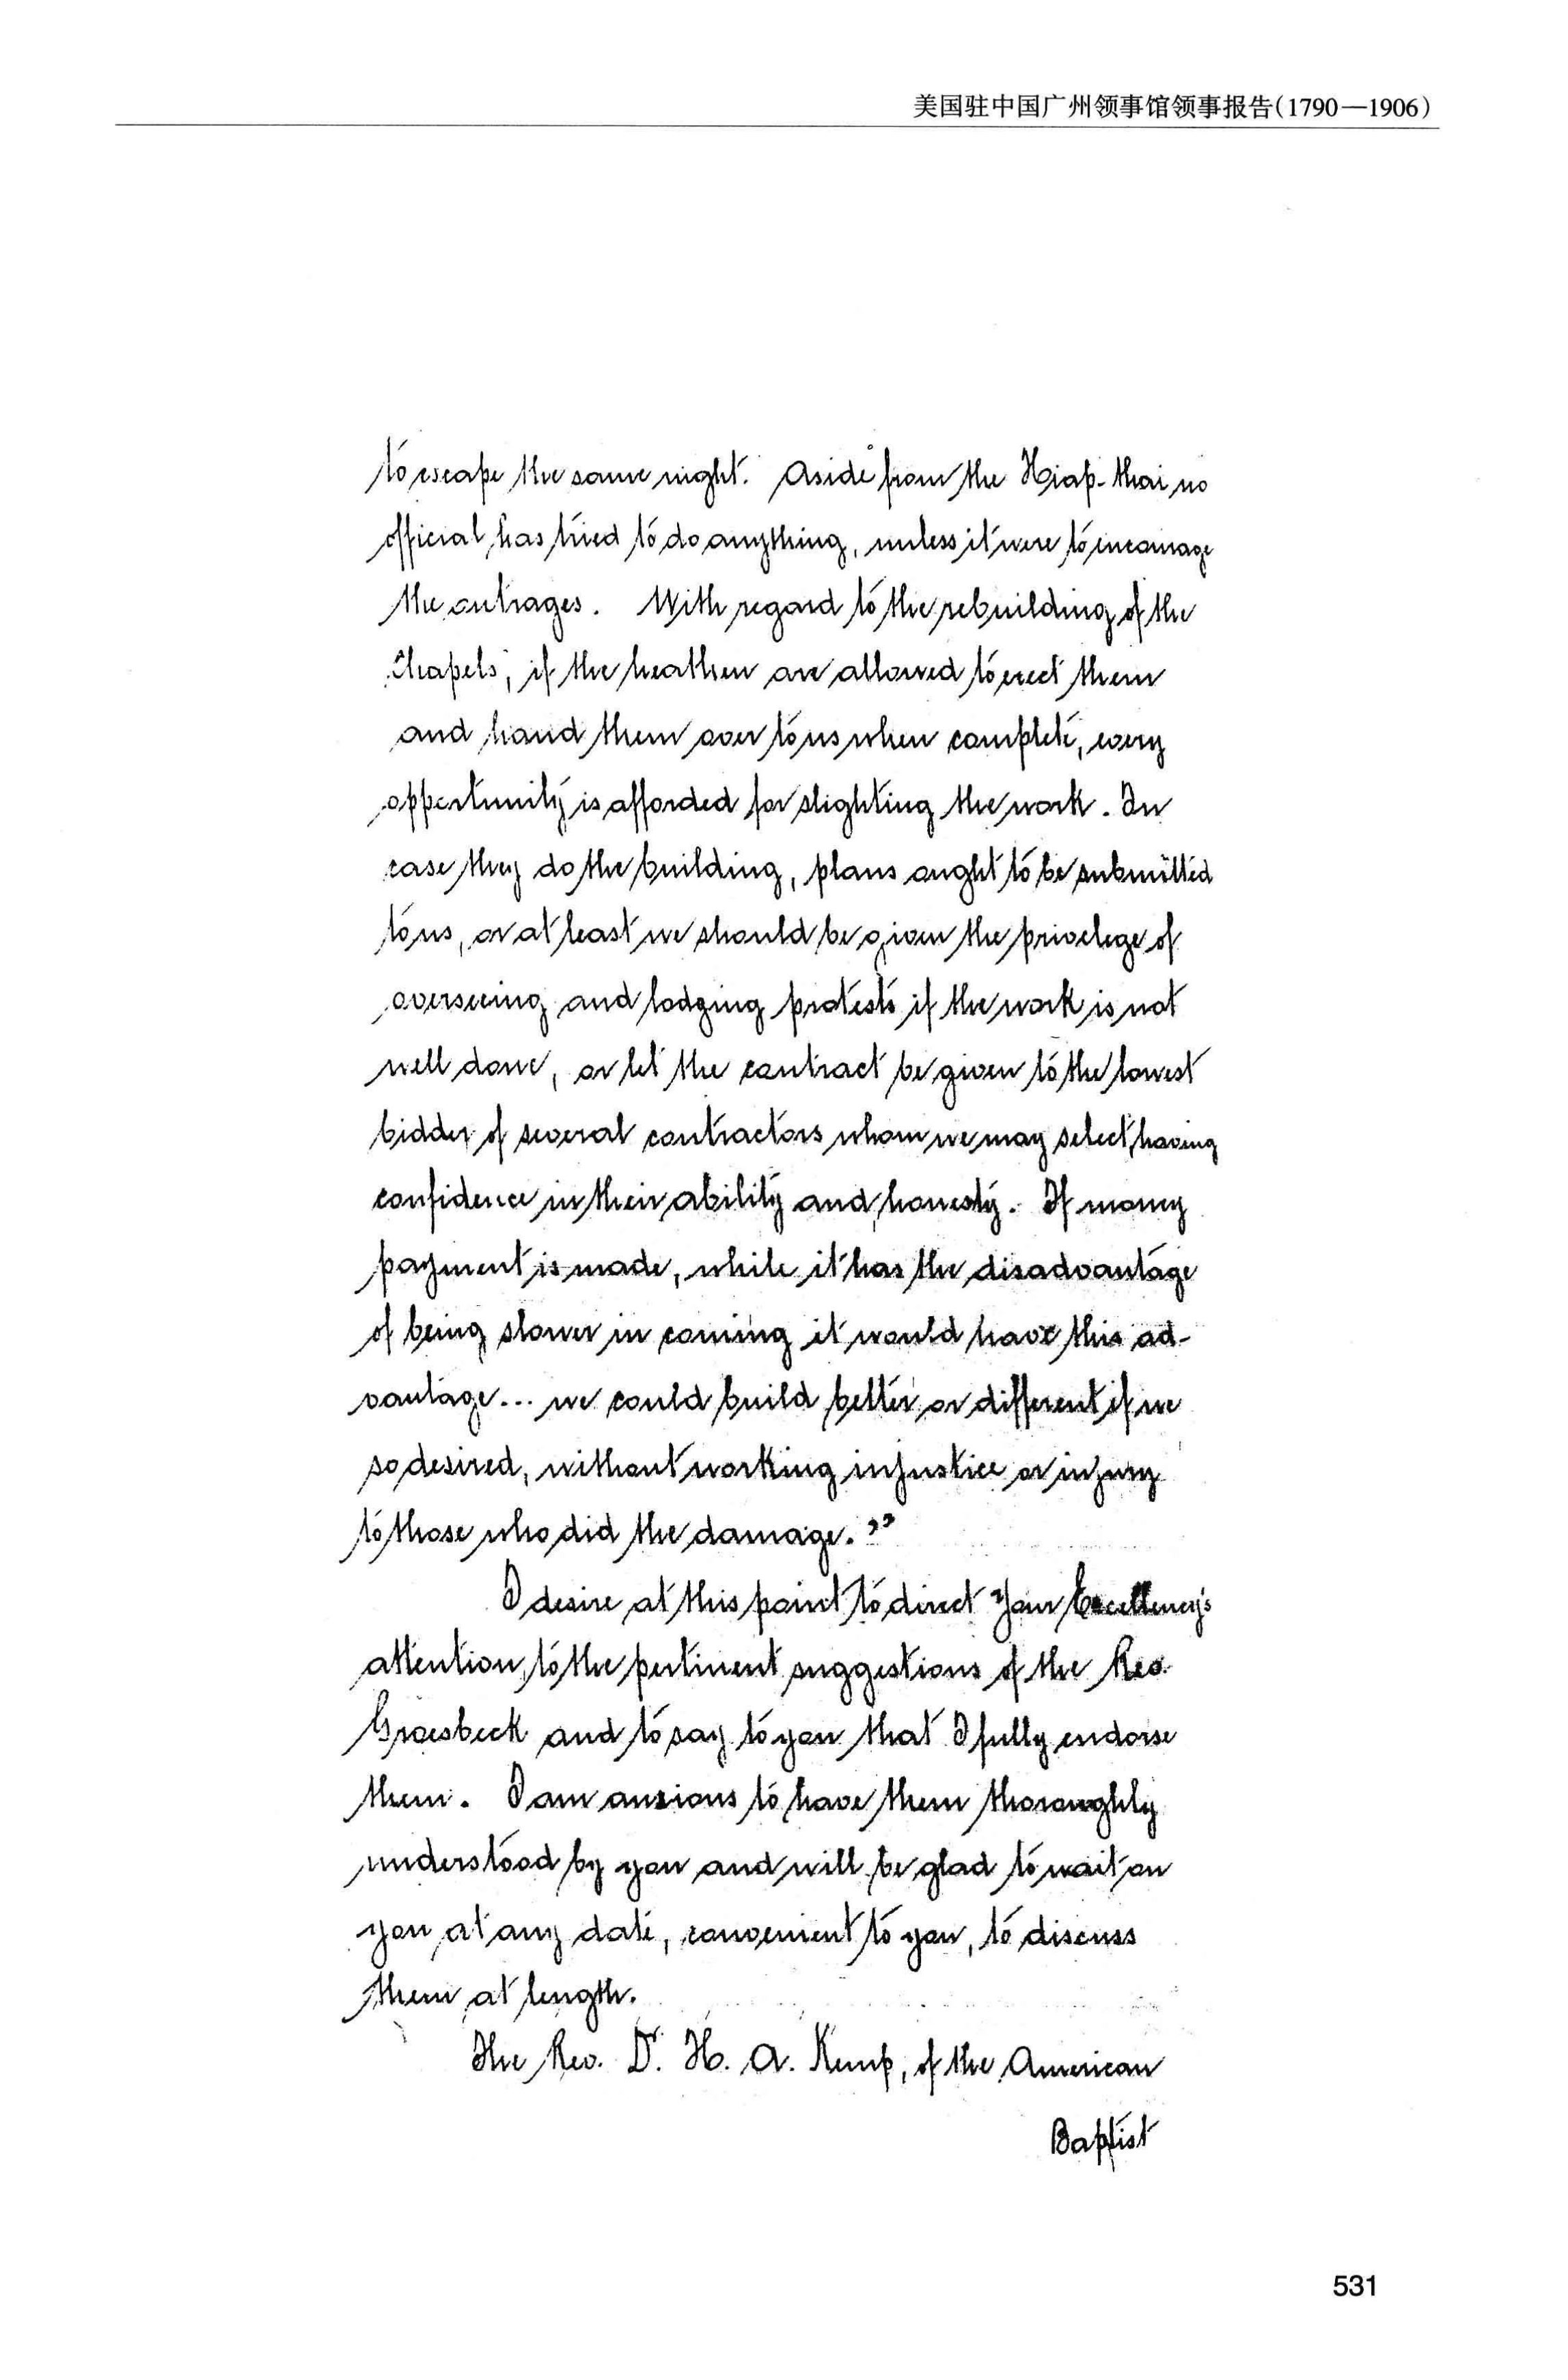 美国驻中国广州领事馆领事报告(1790—1906)
to escape the same night. Aside from the Hiap-thai no
official has tried to do anything, unless it were to encourage
the outrages. With regard to the rebuilding of the
Chapels, if the heathen are allowed to erect them
and hand them over to us when complete, every
opportunity is afforded for slighting the work. In
case they do the building, plans ought to be submitted
to us, or at least we should be given the privelege of
overseeing and lodging protests if the work is not
well done, or let the contract be given to the lowest
bidder of several contractors whom we may select, having
confidence in their ability and honesty. If money
payment is made, while it has the disadvantage
of being slower in coming it would have this ad-
vantage... we could build better or different if we
so desired, without working injustice or injury
to those who did the damage."
I desire at this point to direct Your Excellency's
attention, to the pertinent suggestions of the Rev.
Groesbeck and to say to you that I fully endorse
them. I am anxious to have them thoroughly
understood by you and will be glad to wait on
you at any date, convenient to you, to discuss
them at length.
The Rev. Dr. H. A. Kemp, of the American
Baptist
531